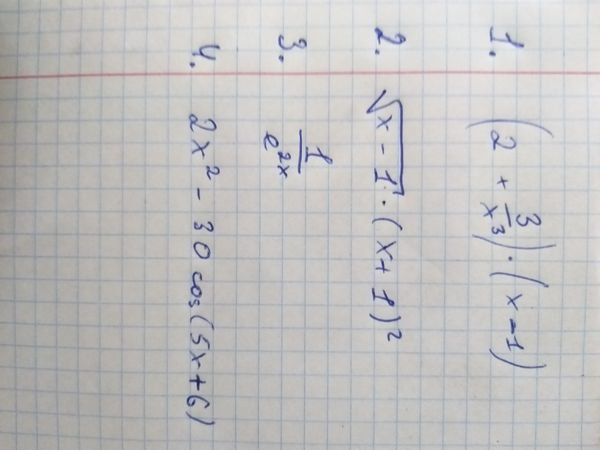 1. (2 + 3/x³) · (x - 1)
2. √(x - 1) · (x + 1)²
3. 1/e²ˣ
4. 2x² - 30 cos(5x + 6)